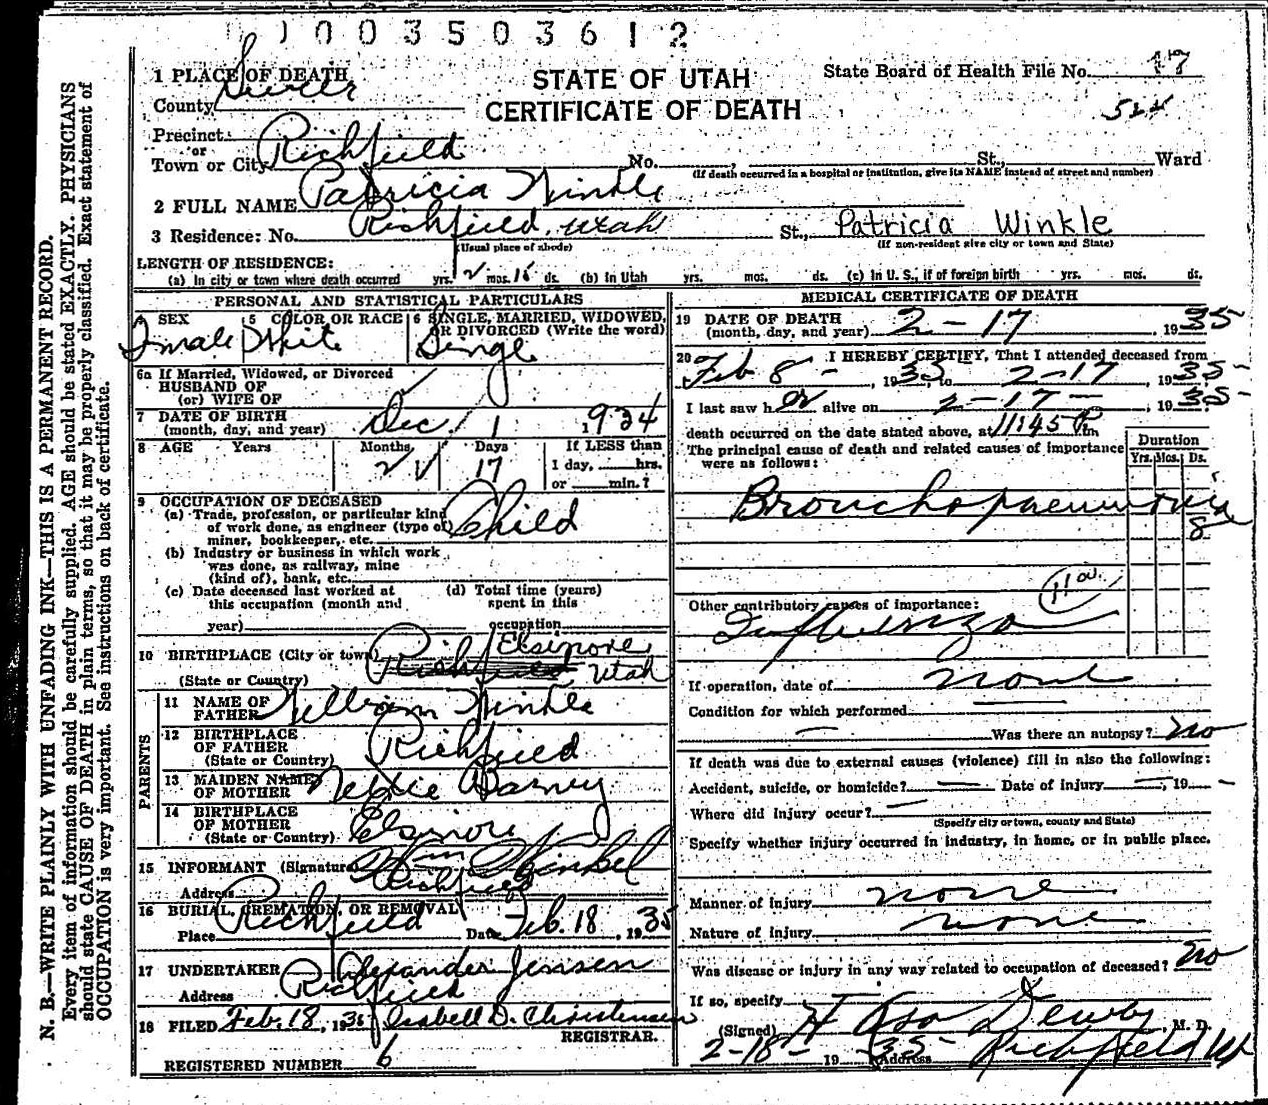 1003503612
1 PLACE OF DEATH
STATE OF UTAH
CERTIFICATE OF DEATH
State Board of Health File No. 17
County Sevier
Precinct
or
Town or City Richfield No. , St., Ward
(If death occurred in a hospital or institution, give its NAME instead of street and number)
2 FULL NAME Patricia Winkle
3 Residence: No. Richfield, Utah St., Patricia Winkle
(Usual place of abode) (If non-resident give city or town and State)
LENGTH OF RESIDENCE:
(a) In city or town where death occurred yrs. 2 mos. 16 ds. (b) In Utah yrs. mos. ds. (c) In U. S., if of foreign birth yrs. mos. ds.
PERSONAL AND STATISTICAL PARTICULARS
4 SEX 5 COLOR OR RACE 6 SINGLE, MARRIED, WIDOWED, OR DIVORCED (Write the word)
Female White Single
6a If Married, Widowed, or Divorced
HUSBAND OF
(or) WIFE OF
7 DATE OF BIRTH
(month, day, and year) Dec. 1 1934
8 AGE Years Months Days If LESS than
2 17 1 day, hrs.
or min.?
9 OCCUPATION OF DECEASED
(a) Trade, profession, or particular kind
of work done, as engineer (type of
miner, bookkeeper, etc. Child
(b) Industry or business in which work
was done, as railway, mine
(kind of), bank, etc.
(c) Date deceased last worked at (d) Total time (years)
this occupation (month and spent in this
year) occupation
10 BIRTHPLACE (City or town) Richfield Elsinore
(State or Country) Utah
PARENTS
11 NAME OF
FATHER William Winkle
12 BIRTHPLACE
OF FATHER Richfield
(State or Country)
13 MAIDEN NAME
OF MOTHER Nettie Barney
14 BIRTHPLACE
OF MOTHER Elsinore
(State or Country)
15 INFORMANT (Signature) Wm Winkel
Address Richfield
16 BURIAL, CREMATION, OR REMOVAL
Place Richfield Date Feb. 18, 1935
17 UNDERTAKER Alexander Jensen
Address Richfield
18 FILED Feb. 18, 1935 Isabell D. Christensen
REGISTRAR.
REGISTERED NUMBER 6
MEDICAL CERTIFICATE OF DEATH
19 DATE OF DEATH
(month, day, and year) 2-17, 1935
20 I HEREBY CERTIFY, That I attended deceased from
Feb 8-, 1935 to 2-17, 1935-
I last saw her alive on 2-17-, 1935-
death occurred on the date stated above, at 11:45 P.m
The principal cause of death and related causes of importance
were as follows:
Duration
Yrs. Mos. Ds.
Bronchopneumonia
8
Other contributory causes of importance:
Influenza
If operation, date of none
Condition for which performed
Was there an autopsy? No
If death was due to external causes (violence) fill in also the following:
Accident, suicide, or homicide? — Date of injury —, 19 -
Where did injury occur? —
(Specify city or town, county and State)
Specify whether injury occurred in industry, in home, or in public place.
Manner of injury none
Nature of injury none
Was disease or injury in any way related to occupation of deceased? No
If so, specify
(Signed) Dewby, M. D.
2-18- 19-35- Address Richfield Ut
N. B.—WRITE PLAINLY WITH UNFADING INK—THIS IS A PERMANENT RECORD.
Every item of information should be carefully supplied. AGE should be stated EXACTLY. PHYSICIANS
should state CAUSE OF DEATH in plain terms, so that it may be properly classified. Exact statement of
OCCUPATION is very important. See instructions on back of certificate.